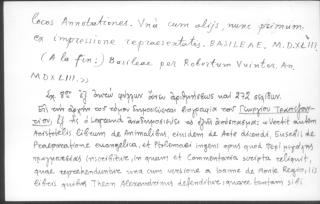 locos Annotationes. Unà cum alijs, nunc primum
ex impressione repraesentatis. BASILEAE. M.D.XLIII.
(A la fin:) Basileae per Robertum Vuinter. An.
MDXLIII.»
Σχ. 8ον ἐξ ὀκτὼ φύλλων ἄνευ ἀριθμήσεως καὶ 272 σελίδων.
Εἰς τὴν ἀρχὴν τοῦ τόμου δημοσιεύεται βιογραφία τοῦ Γεωργίου Τραπεζουν-
τίου, ἐξ ἧς ὁ Legrand ἀναδημοσιεύει τὸ ἑξῆς ἀπόσπασμα: «Vertit autem
Aristotelis librum de Animalibus, eiusdem de Arte dicendi, Eusebii de
Praeparatione euangelica, et Ptolomaei ingens opus quod Περὶ μεγάλης
πραγματείας inscribitur, in quam et Commentaria scripta reliquit,
quae reprehenduntur una cum versione a Ioanne de Monte Regio, iis
libris quibus Theon Alexandrinus defenditur; quare tantum sibi